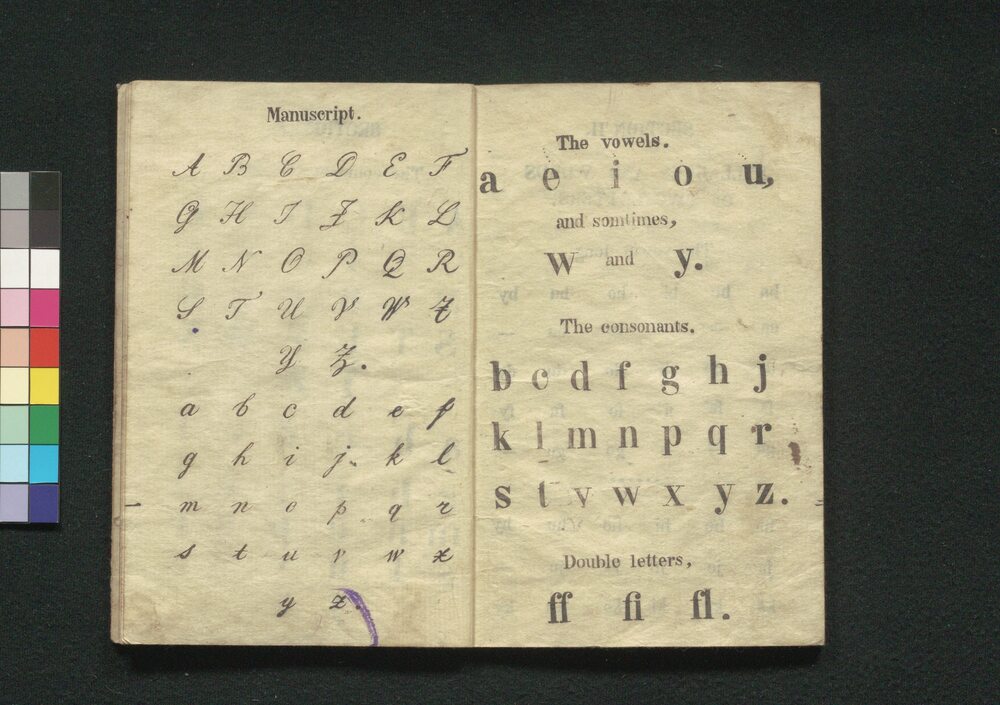 Manuscript.
A B C D E F
G H I J K L
M N O P Q R
S T U V W X
Y Z.
a b c d e f
g h i j k l
m n o p q r
s t u v w x
y z.
The vowels.
a e i o u,
and somtimes,
w and y.
The consonants.
b c d f g h j
k l m n p q r
s t v w x y z.
Double letters,
ff fi fl.